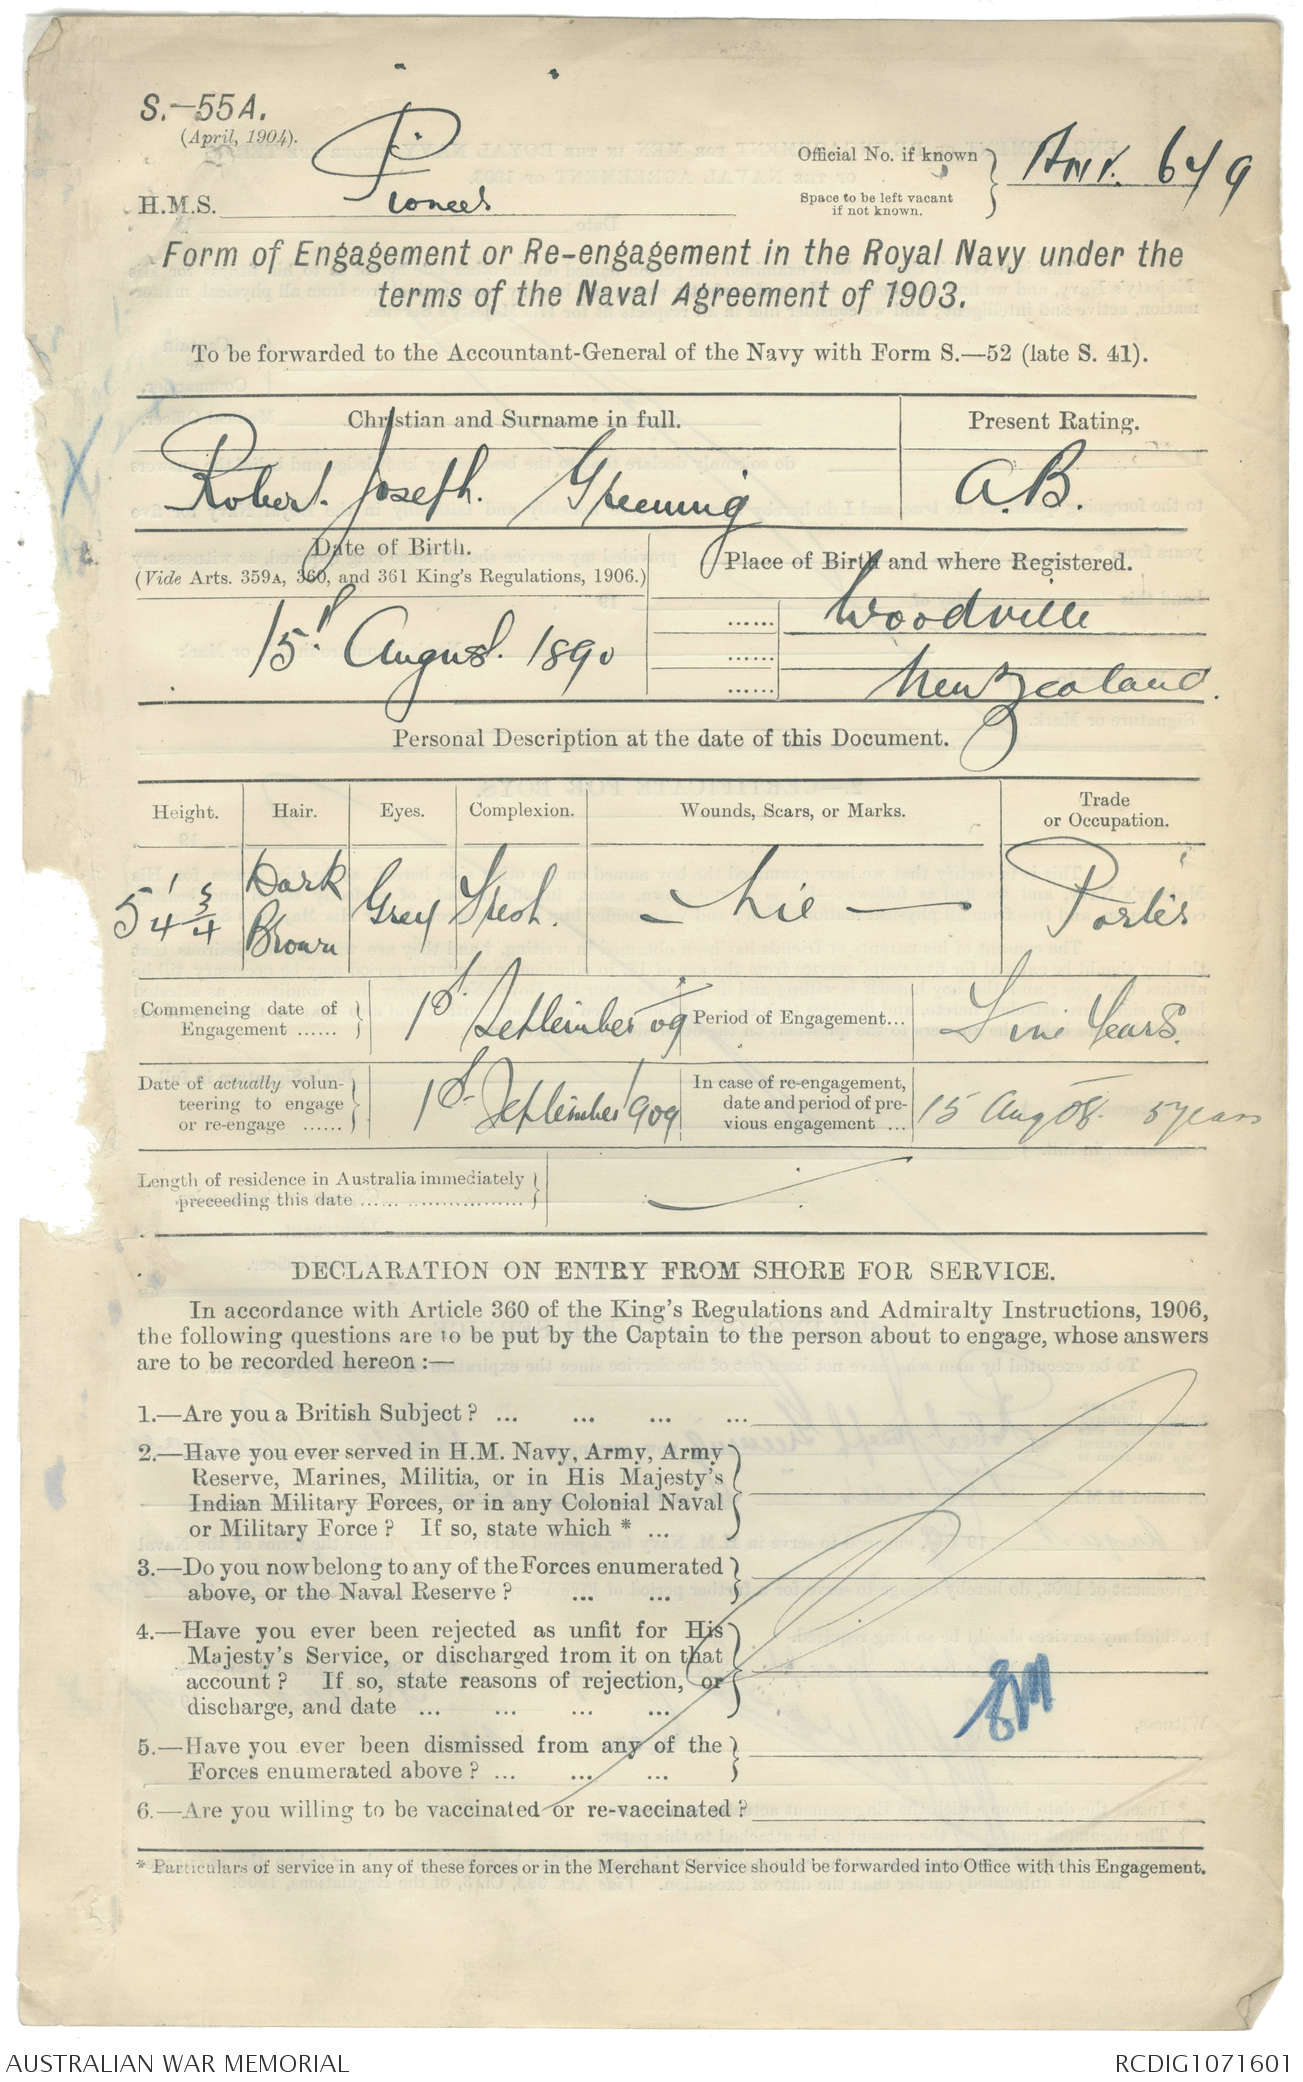 S.—55A.
(April, 1904).
Official No. if known
Space to be left vacant
if not known.
649
H.M.S. Pioneer
Form of Engagement or Re-engagement in the Royal Navy under the
terms of the Naval Agreement of 1903.
To be forwarded to the Accountant-General of the Navy with Form S.—52 (late S. 41).
Christian and Surname in full.
Present Rating.
Robert Joseph. Greening
A.B.
Date of Birth.
(Vide Arts. 359A, 360, and 361 King's Regulations, 1906.)
Place of Birth and where Registered.
15th August. 1890
......
Woodville
......
......
New Zealand.
Personal Description at the date of this Document.
Height.
Hair.
Eyes.
Complexion.
Wounds, Scars, or Marks.
Trade
or Occupation.
5' 4 3/4
Dark
Brown
Grey
Fresh.
— Nil —
Porter
Commencing date of
Engagement ......
1st September 09
Period of Engagement...
Five Years.
Date of actually volun-
teering to engage
or re-engage ......
1st September 1909
In case of re-engagement,
date and period of pre-
vious engagement ...
15 Aug 08. 5 years
Length of residence in Australia immediately
preceeding this date ...... ..................
DECLARATION ON ENTRY FROM SHORE FOR SERVICE.
In accordance with Article 360 of the King's Regulations and Admiralty Instructions, 1906,
the following questions are to be put by the Captain to the person about to engage, whose answers
are to be recorded hereon :—
1.—Are you a British Subject ? ... ... ... ...
2.—Have you ever served in H.M. Navy, Army, Army
Reserve, Marines, Militia, or in His Majesty's
Indian Military Forces, or in any Colonial Naval
or Military Force ? If so, state which * ...
3.—Do you now belong to any of the Forces enumerated
above, or the Naval Reserve ? ... ...
4.—Have you ever been rejected as unfit for His
Majesty's Service, or discharged from it on that
account ? If so, state reasons of rejection, or
discharge, and date ... ... ... ...
5.—Have you ever been dismissed from any of the
Forces enumerated above ? ... ... ...
6.—Are you willing to be vaccinated or re-vaccinated ?
* Particulars of service in any of these forces or in the Merchant Service should be forwarded into Office with this Engagement.
AUSTRALIAN WAR MEMORIAL
RCDIG1071601